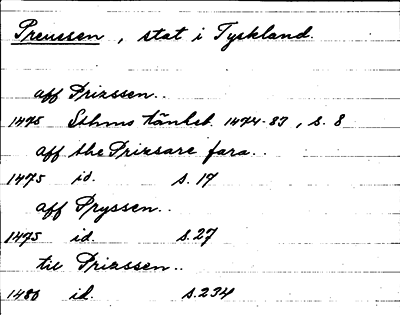 Preussen, stat i Tyskland.
aff Prizssen..
1475 Sthms tänkeb. 1474-83, s. 8
aff the Prizsare fara..
1475 id. s. 17
aff Pryssen..
1475 id. s. 27
til Prizssen..
1480 id. s. 234